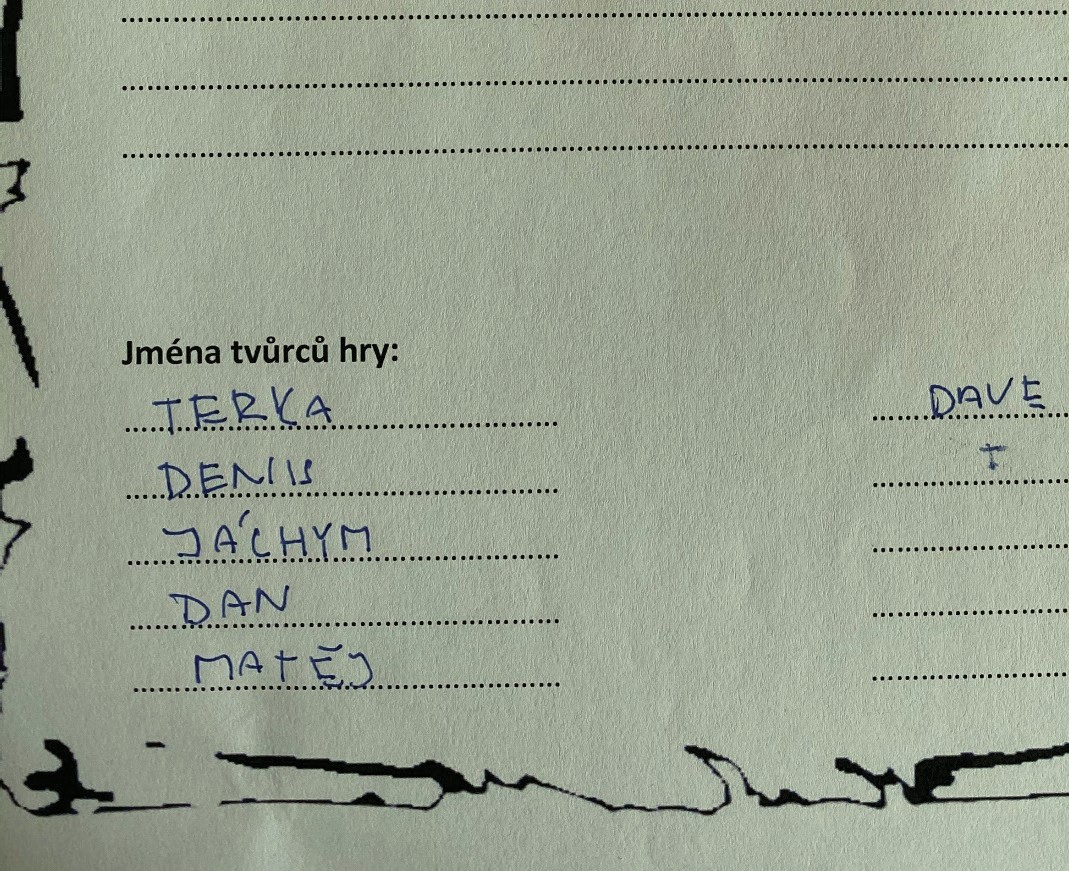 Jména tvůrců hry:
TERKA
DENIS
JÁCHYM
DAN
MATĚJ
DAVE
T